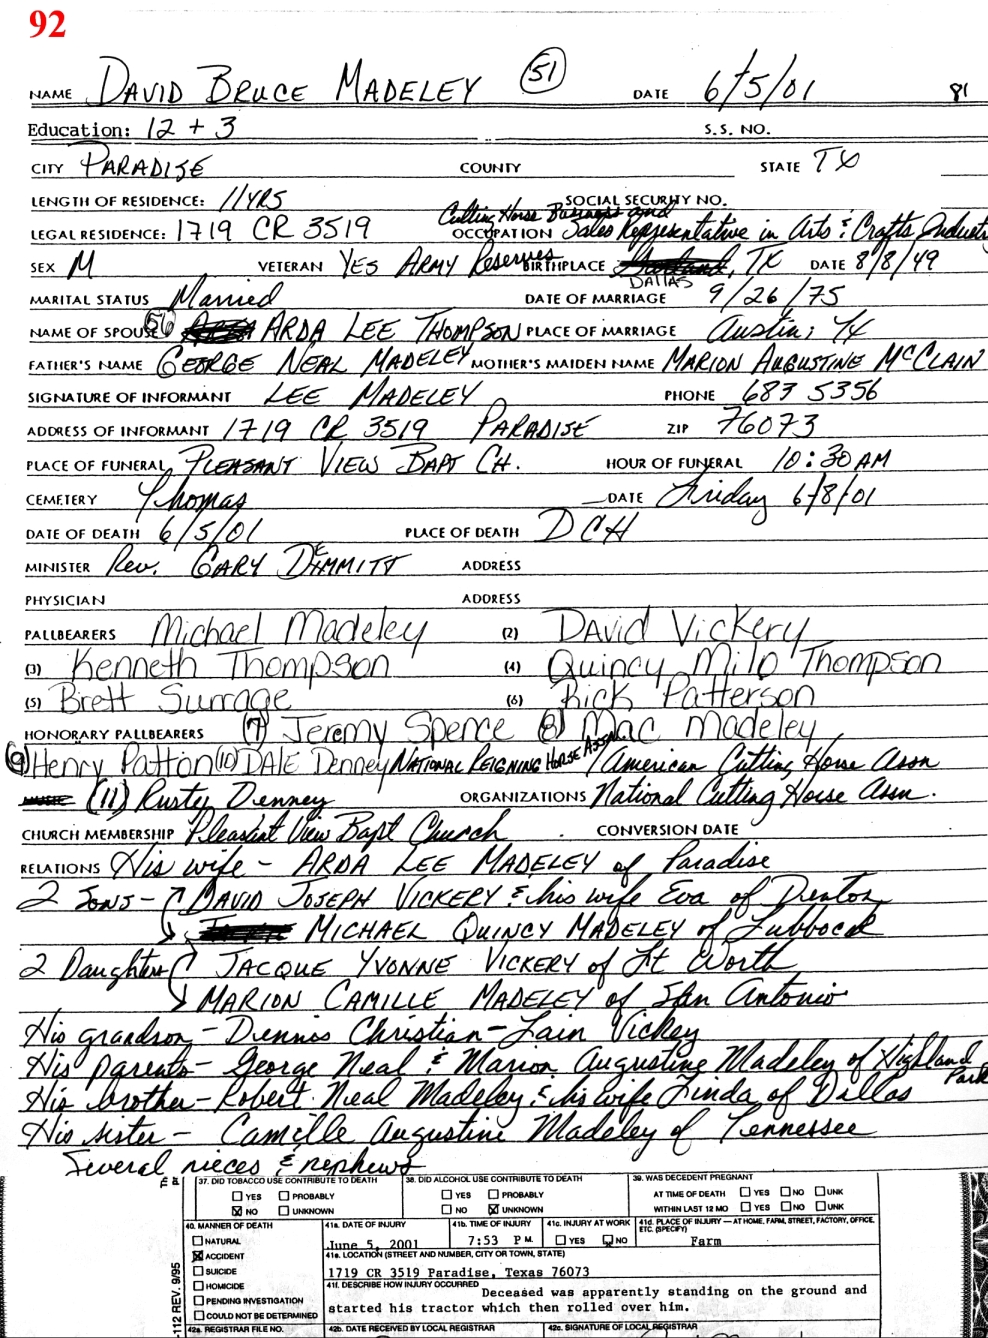 92
NAME DAVID BRUCE MADELEY (51) DATE 6/5/01 81
Education: 12 + 3 S.S. NO.
CITY PARADISE COUNTY STATE TX
LENGTH OF RESIDENCE: 11 YRS SOCIAL SECURITY NO.
Cutting Horse Business and
LEGAL RESIDENCE: 1719 CR 3519 OCCUPATION Sales Representative in Arts & Crafts Industry
SEX M VETERAN YES ARMY Reserves BIRTHPLACE DALLAS, TX DATE 8/8/49
MARITAL STATUS Married DATE OF MARRIAGE 9/26/75
NAME OF SPOUSE (56) ARDA LEE THOMPSON PLACE OF MARRIAGE Austin, TX
FATHER'S NAME GEORGE NEAL MADELEY MOTHER'S MAIDEN NAME MARION AUGUSTINE McCLAIN
SIGNATURE OF INFORMANT LEE MADELEY PHONE 683 5356
ADDRESS OF INFORMANT 1719 CR 3519 PARADISE ZIP 76073
PLACE OF FUNERAL PLEASANT VIEW BAPT CH. HOUR OF FUNERAL 10:30 AM
CEMETERY Thomas DATE Friday 6/8/01
DATE OF DEATH 6/5/01 PLACE OF DEATH DCH
MINISTER Rev. GARY DEMMITT ADDRESS
PHYSICIAN ADDRESS
PALLBEARERS Michael Madeley (2) David Vickery
(3) Kenneth Thompson (4) Quincy Milo Thompson
(5) Brett Surrage (6) Rick Patterson
HONORARY PALLBEARERS (7) Jeremy Spence (8) Mac Madeley
(9) Henry Patton (10) DALE Denney NATIONAL REIGNING HORSE ASSN / American Cutting Horse Assn
MUSIC (11) Rusty Denney ORGANIZATIONS National Cutting Horse Assn.
CHURCH MEMBERSHIP Pleasant View Bapt Church CONVERSION DATE
RELATIONS His wife - ARDA LEE MADELEY of Paradise
2 SONS - DAVID JOSEPH VICKERY & his wife Eva of Denton
MICHAEL QUINCY MADELEY of Lubbock
2 Daughters JACQUE YVONNE VICKERY of Ft Worth
MARION CAMILLE MADELEY of San Antonio
His grandson - Dennis Christian-Zain Vickey
His parents - George Neal & Marion Augustine Madeley of Highland Park
His brother - Robert Neal Madeley & his wife Linda of Dallas
His sister - Camille Augustine Madeley of Tennessee
Several nieces & nephews
37. DID TOBACCO USE CONTRIBUTE TO DEATH 38. DID ALCOHOL USE CONTRIBUTE TO DEATH 39. WAS DECEDENT PREGNANT
YES PROBABLY YES PROBABLY AT TIME OF DEATH YES NO UNK
NO UNKNOWN NO UNKNOWN WITHIN LAST 12 MO YES NO UNK
40. MANNER OF DEATH 41a. DATE OF INJURY 41b. TIME OF INJURY 41c. INJURY AT WORK 41d. PLACE OF INJURY — AT HOME, FARM, STREET, FACTORY, OFFICE, ETC. (SPECIFY)
NATURAL June 5, 2001 7:53 P M. YES NO Farm
ACCIDENT 41e. LOCATION (STREET AND NUMBER, CITY OR TOWN, STATE)
SUICIDE 1719 CR 3519 Paradise, Texas 76073
HOMICIDE 41f. DESCRIBE HOW INJURY OCCURRED Deceased was apparently standing on the ground and
PENDING INVESTIGATION started his tractor which then rolled over him.
COULD NOT BE DETERMINED
42a. REGISTRAR FILE NO. 42b. DATE RECEIVED BY LOCAL REGISTRAR 42c. SIGNATURE OF LOCAL REGISTRAR
-112 REV. 9/95